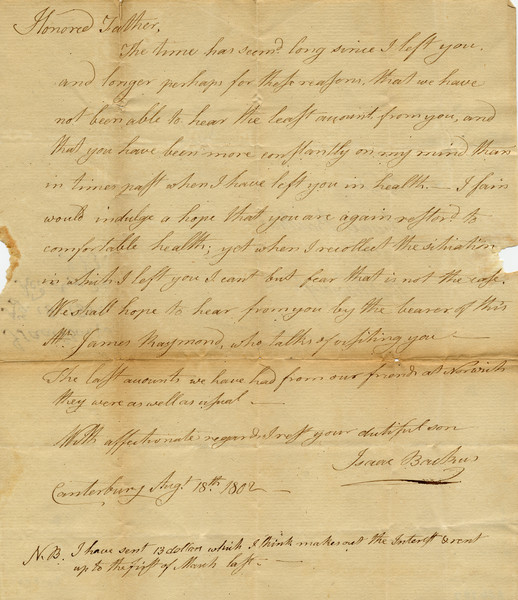 Honored Father,
The time has seemd long since I left you,
and longer perhaps for these reasons, that we have
not been able to hear the least account from you, and
that you have been more constantly on my mind than
in times past when I have left you in health — I fain
would indulge a hope that you are again restord to
comfortable health; yet when I recollect the situation
in which I left you I cant but fear that is not the case.
We shall hope to hear from you by the bearer of this
Mr. James Raymond, who talks of visiting you
The last accounts we have had from our friends at Norwich
they were as well as usual —
With affectionate regards I rest your dutiful son
Isaac Backus
Canterbury Augt 18th 1802 —
N.B. I have sent 13 dollars which I think makes out the Interest & rent
up to the first of March last. —